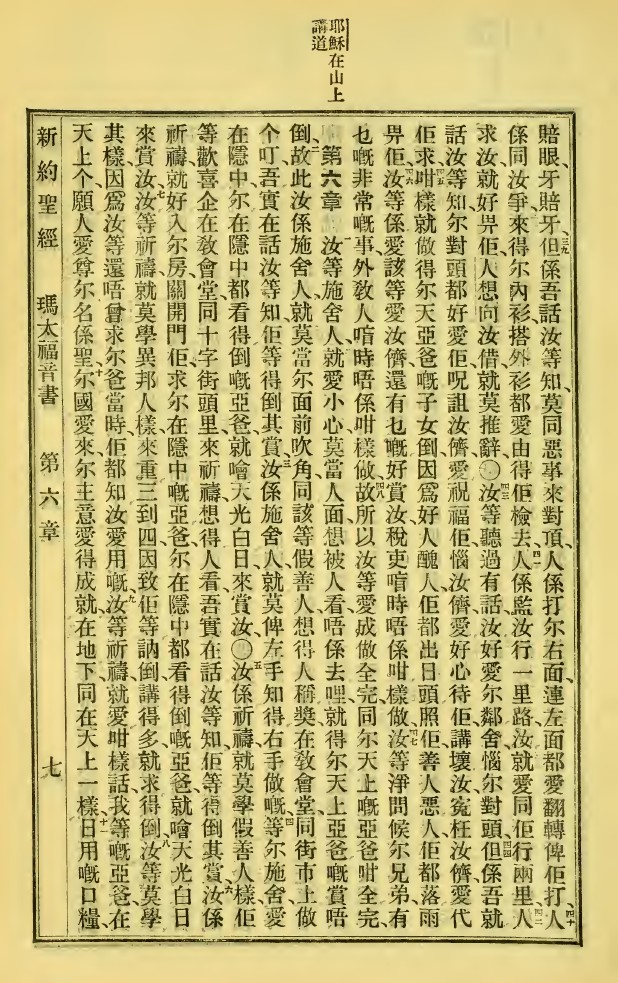 耶穌在山上
講道
賠眼、牙賠牙、三九但係吾話汝等知、莫同惡事來對頂、人係打尔右面、連左面都愛翻轉俾佢打、四十人
係同汝爭來得尔內衫、搭外衫都愛由得佢檢去、四一人係監汝行一里路、汝就愛同佢行兩里、四二人
求汝就好畀佢、人想向汝借、就莫推辭、〇四三汝等聽過有話、汝好愛尔鄰舍、惱尔對頭、四四但係吾就
話汝等知、尔對頭都好愛佢、呪詛汝儕、愛祝福佢、惱汝儕、愛好心待佢、講壞汝寃枉汝儕、愛代
佢求、四五咁樣就做得尔天亞爸嘅子女倒、因爲好人醜人、佢都出日頭照佢、善人惡人、佢都落雨
畀佢、四六汝等係愛該等愛汝儕、還有乜嘅好賞汝、稅吏唶時唔係咁樣做、四七汝等淨問候尔兄弟、有
乜嘅非常嘅事、外敎人唶時唔係咁樣做、四八故所以汝等愛成做全完、同尔天上嘅亞爸咁全完、
第六章 一汝等施舍人、就愛小心、莫當人面、想被人看、唔係去哩、就得尔天上亞爸嘅賞唔
倒、二故此汝係施舍人、就莫當尔面前吹角、同該等假善人、想得人稱獎、在敎會堂同街市上做
个、叮吾實在話汝等知、佢等得倒其賞、三汝係施舍人、就莫俾左手知得右手做嘅、四等尔施舍、愛
在隱中、尔在隱中都看得倒嘅亞爸、就噲天光白日來賞汝、〇五汝係祈禱、就莫學假善人樣、佢
等歡喜企在敎會堂、同十字街頭里來祈禱、想得人看、吾實在話汝等知、佢等得倒其賞、六汝係
祈禱、就好入尔房、關開門、佢求尔在隱中嘅亞爸、尔在隱中都看得倒嘅亞爸、就噲天光白日
來賞汝、七汝等祈禱、就莫學異邦人樣、來重三到四、因致佢等訥倒講得多、就求得倒、八汝等莫學
其樣、因爲汝等還唔曾求尔爸當時、佢都知汝愛用嘅、九汝等祈禱、就愛咁樣話、我等嘅亞爸、在
天上个、願人愛尊尔名係聖、十尔國愛來、尔主意愛得成就在地下、同在天上一樣、十一日用嘅口糧、
新約聖經 瑪太福音書 第六章 七